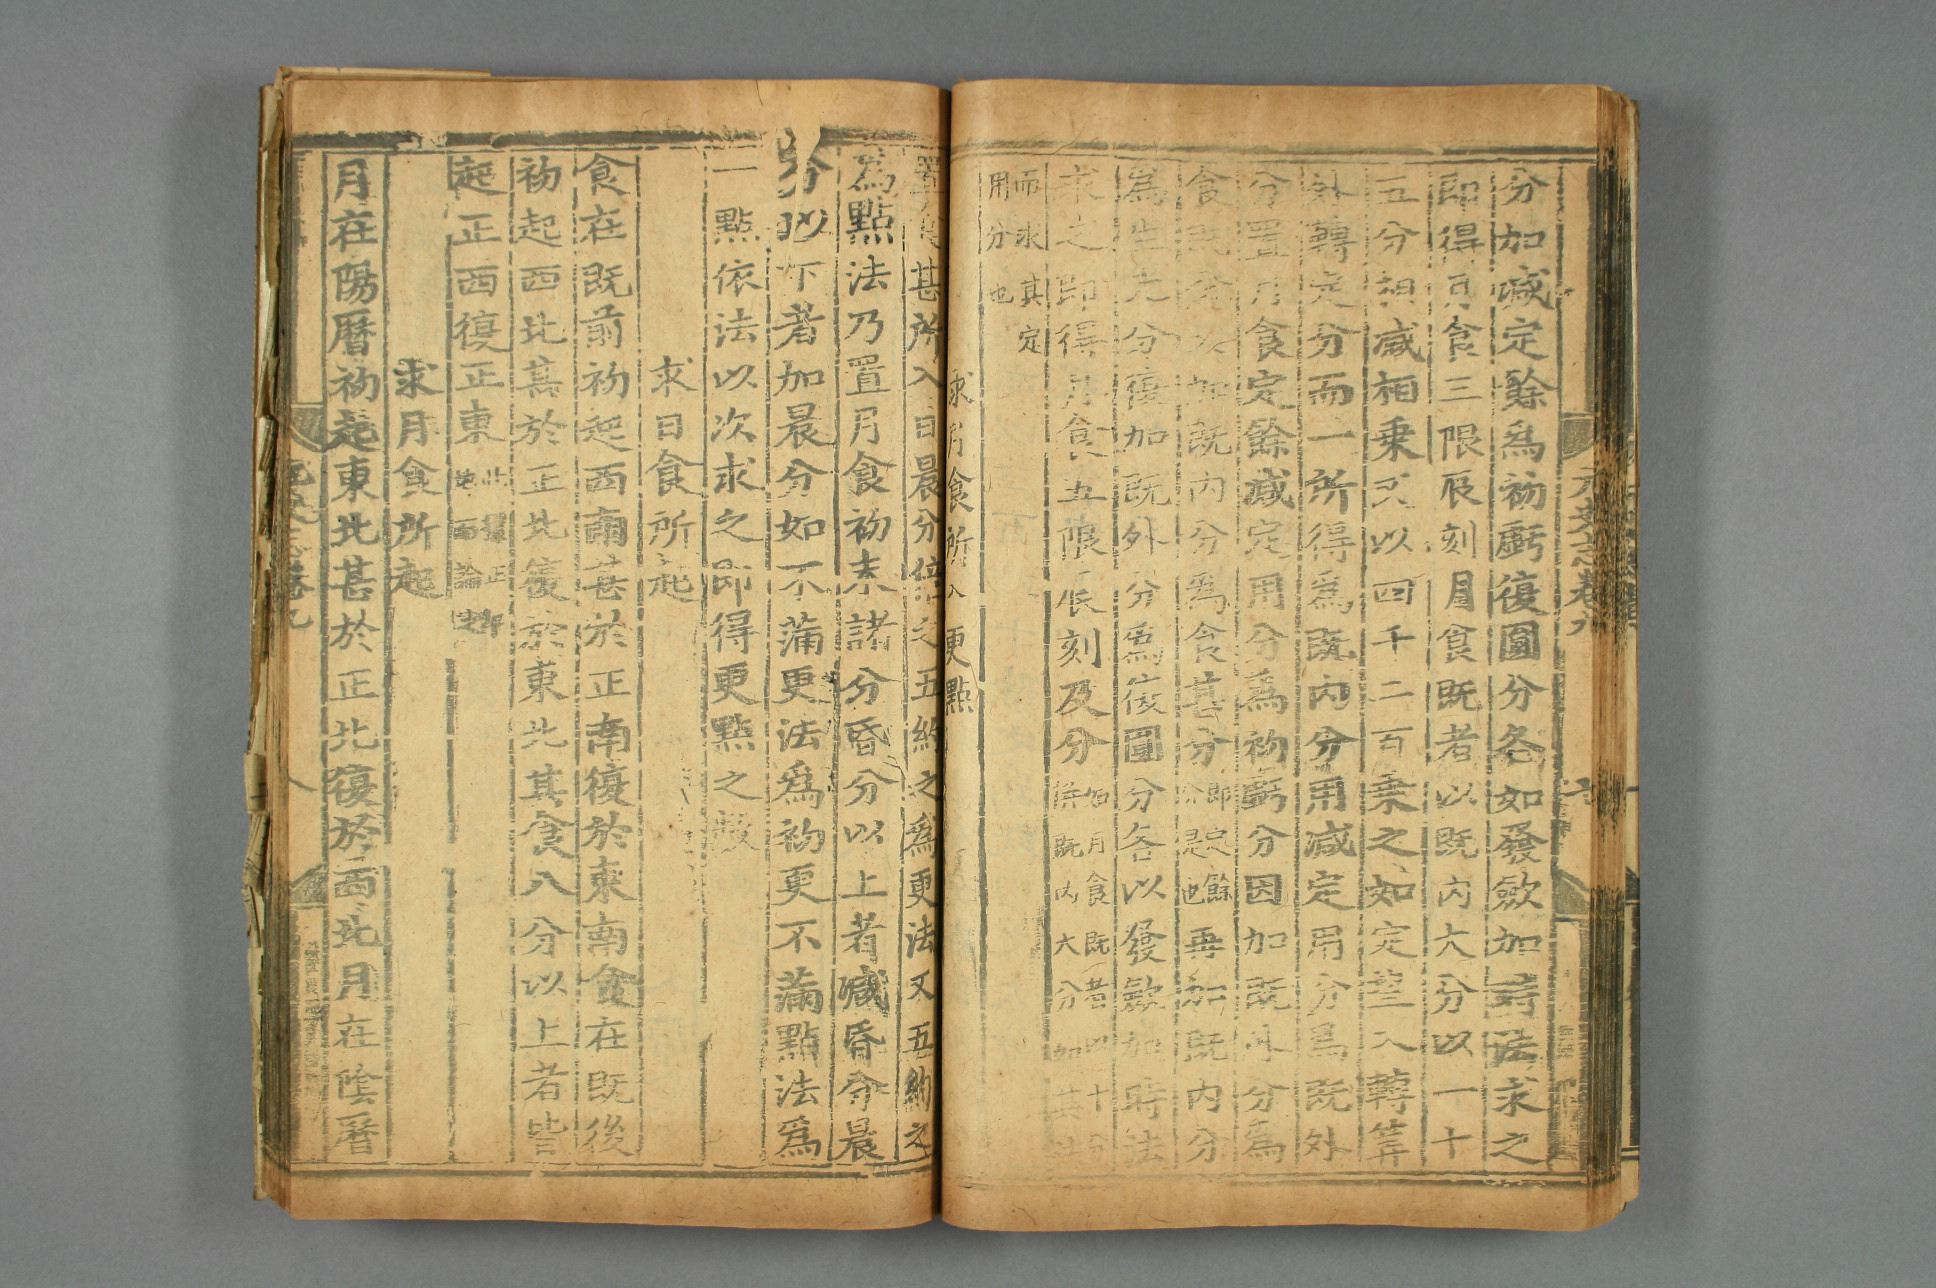 分加减定餘爲初虧復圓分各如發斂加時法求之
即得月食三限辰刻月食既者以既内大分以一十
五分相减相乗又以四千二百乗之如定  入轉筭
外轉定分而一所得爲既内分用减定用分爲既外
分置月食定餘减定用分爲初虧分因加既外分爲
食既分以加既内分爲食甚分即定餘分是也再加既内分
爲生光分復加既外分爲復圓分各以發斂加時法
求之即得月食五限辰刻及分如月食既者以十分除既内大分如其法
而求其定用分也
求月食所入更點
置食甚所入日晨分倍之五約之爲更法又五約之
爲點法乃置月食初末諸分昏分以上者减昏分晨
分以下者加晨分如不滿更法爲初更不滿點法爲
一點依法以次求之即得更點之數
求日食所起
食在既前初起西南甚於正南復於東南食在既後
初起西北甚於正北復於東北其食八分以上者皆
起正西復正東此據正午地而論之
求月食所起
月在陽曆初起東北甚於正北復於西北月在陰曆